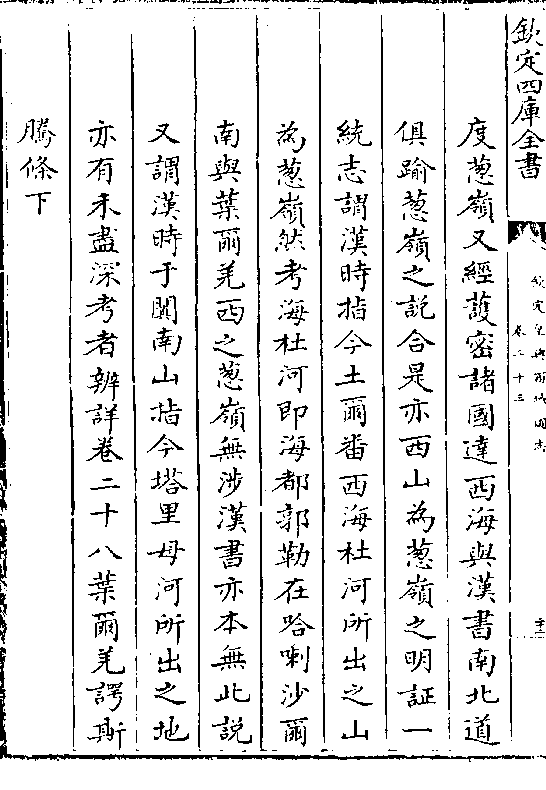 欽定四庫全書
欽定皇輿西域圖志
卷二十三
度葱嶺又經䕶密諸國達西海與漢書南北道
俱踰葱嶺之說合是亦西山為葱嶺之明証一
統志謂漢時指今土爾番西海杜河所出之山
為葱嶺然考海杜河即海都郭勒在哈喇沙爾
南與葉爾羌西之葱嶺無涉漢書亦本無此説
又謂漢時于闐南山指今塔里母河所出之地
亦有未盡深考者辨詳卷二十八葉爾羌諤斯
騰條下